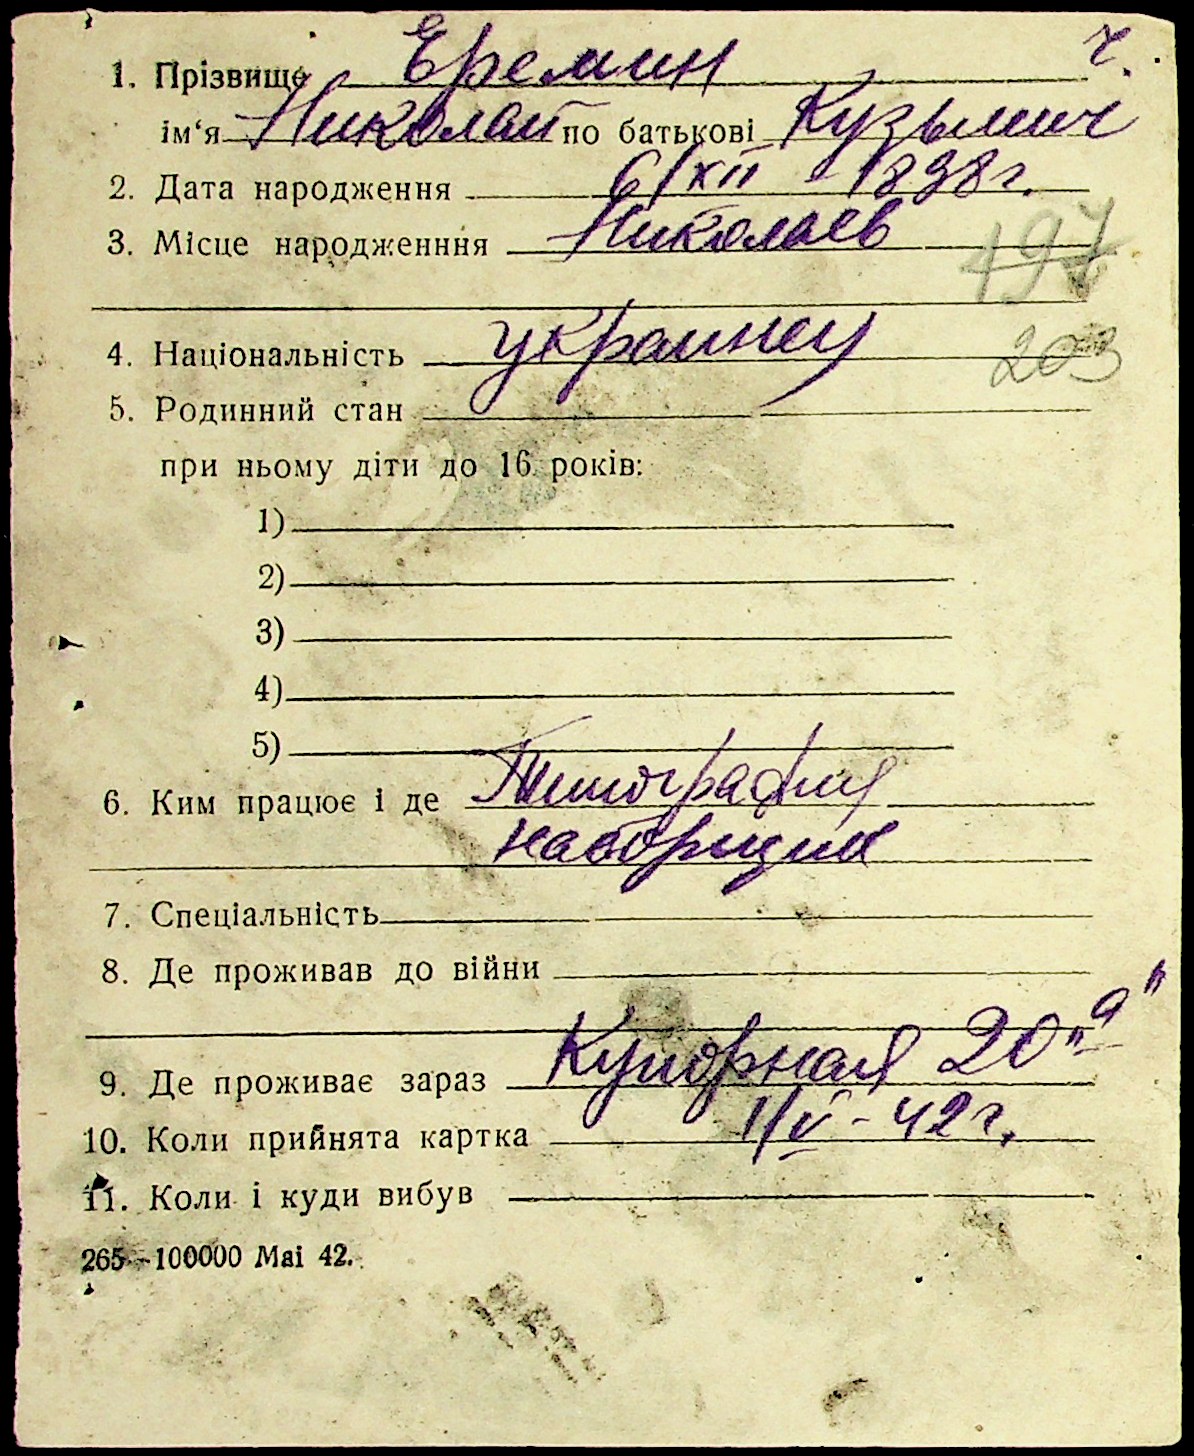 1. Прізвище Еремин ч.
ім‘я Николай по батькові Кузьмич
2. Дата народження 6/XII - 1898 г.
3. Місце народженння Николаев
197
4. Національність украинец
203
5. Родинний стан
при ньому діти до 16 років:
1)
2)
3)
4)
5)
6. Ким працює і де Типография
наборщик
7. Спеціальність
8. Де проживав до війни
9. Де проживає зараз Купорная 20 „а"
10. Коли прийнята картка 1/V - 42 г.
11. Коли і куди вибув
265—100000 Mai 42.